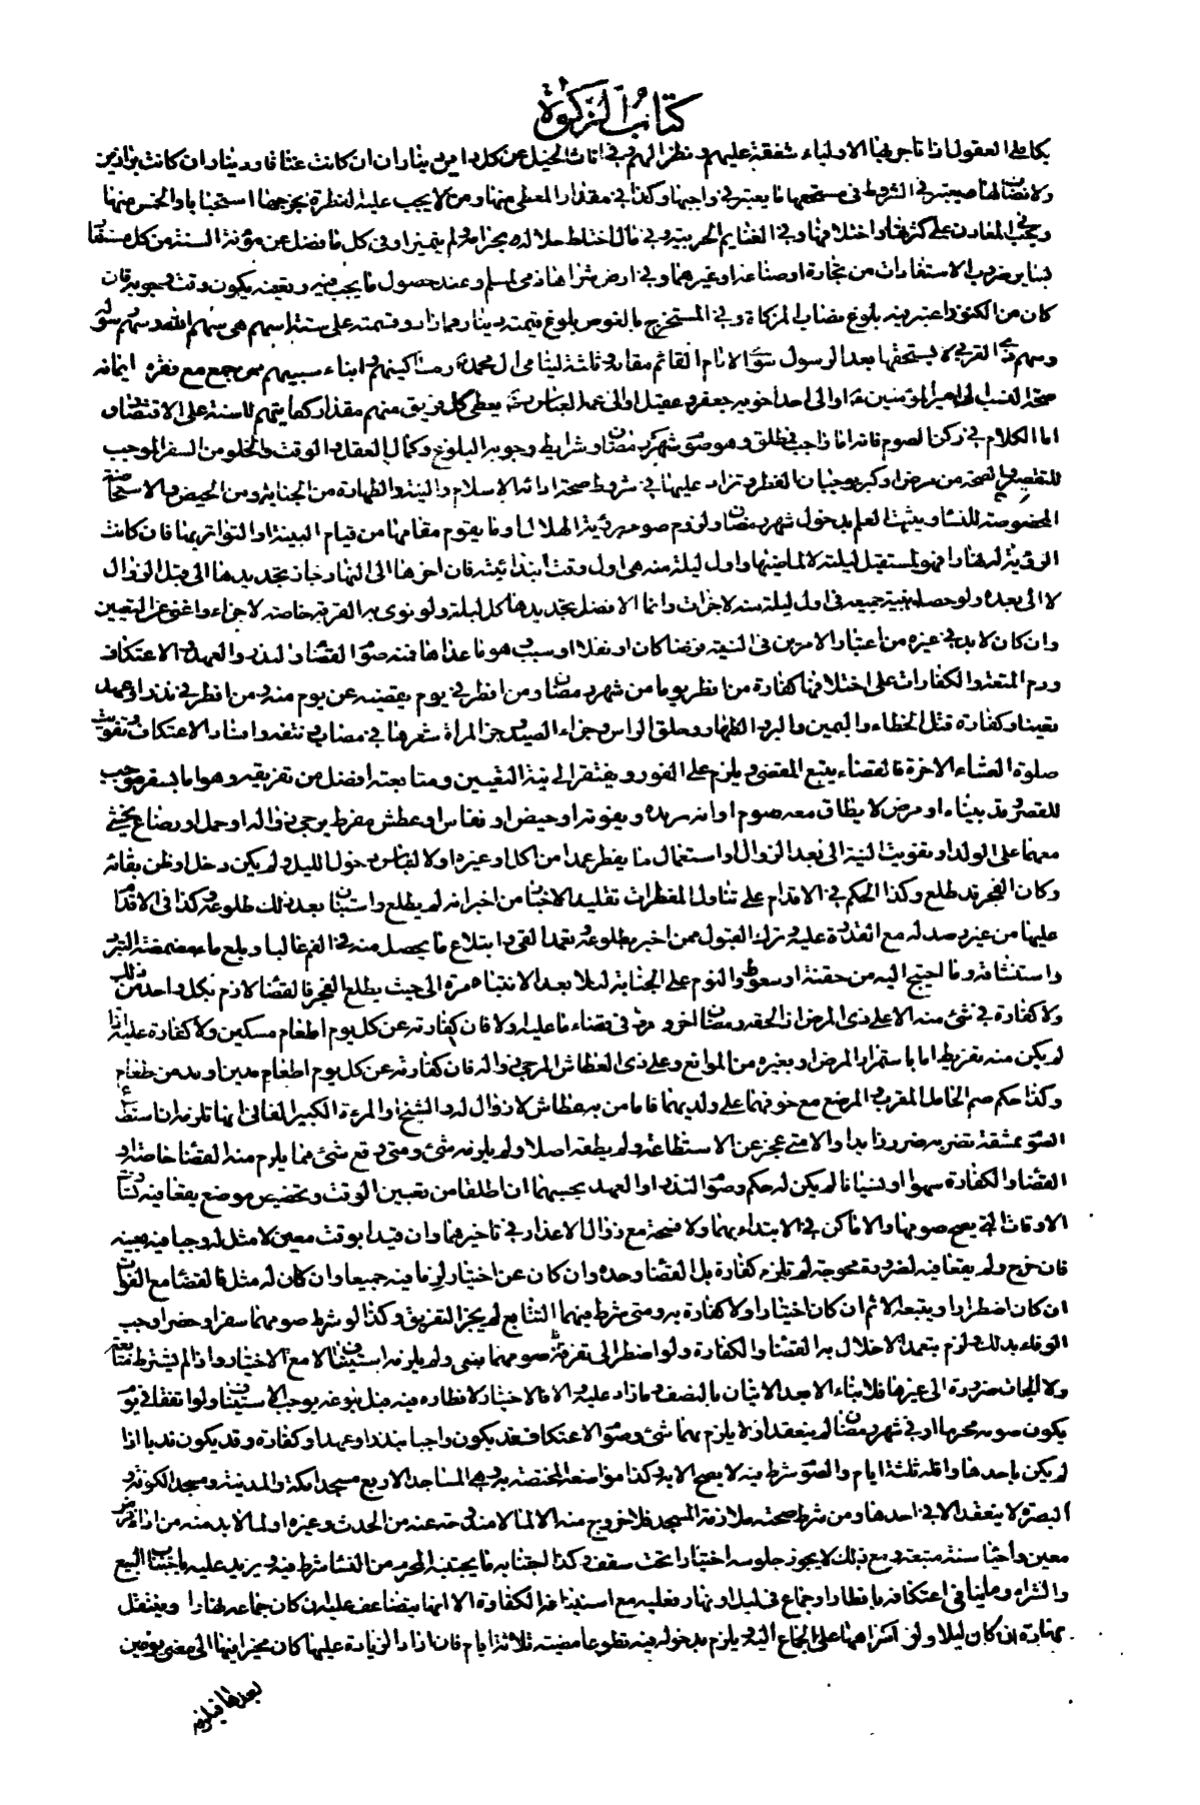 كتاب الزكوة
بكامل العقول اذا تاجر بها الاولياء شفقة عليهم ونظرا لهم وفي اناث الخيل عن كل راس ديناران ان كانت عتاقا ودينار ان كانت براذين
ولا نصاب لها ويعتبر في الشروط في مستحقها ما يعتبر في واجبها وكذا في مقدار المعطى منها ومن لا يجب عليه الفطرة يخرجها استحبابا والخمس منها
ويجب في المعادن على كثرتها واختلافها وفي الغنايم الحربية وفي مال اختلط حلاله بحرامه ولم يتميزا وفي كل ما فضل عن مؤنة السنة من كل مستفاد
بساير ضروب الاستفادات من تجارة او صناعة او غيرهما وفي ارض شراها ذمي من مسلم وعند حصول ما يجب فيه وتعينه يكون وقت وجوبه فان
كان من الكنوز اعتبر فيه بلوغ نصاب الزكاة وفي المستخرج بالغوص بلوغ قيمته دينارا فما زاد وقسمته على ستة اسهم هي سهم الله وسهم رسوله
وسهم ذي القربى لا يستحقها بعد الرسول سوى الامام القائم مقامه وثلثة ليتامى ال محمد ومساكينهم وابناء سبيلهم ممن جمع مع فقره ايمانه
صحة النسب الى امير المؤمنين او الى احد اخويه جعفر وعقيل او الى عمه العباس يعطى كل فريق منهم مقدار كفايتهم للسنة على الاقتصاد
اما الكلام في ركن الصوم فانه اما واجب مطلق وهو صوم شهر رمضان وشرايط وجوبه البلوغ وكمال العقل والوقت والخلو من السفر الموجب
للتقصير والصحة من مرض او كبر يوجبان الفطر وتزاد عليها في شروط صحة ادائه الاسلام والنية والطهارة من الجنابة ومن الحيض والاستحاضة
المخصوصة للنساء ويثبت العلم بدخول شهر رمضان ولزوم صومه رؤية الهلال او ما يقوم مقامها من قيام البينة او التواتر بها فان كانت
الرؤية له نهارا فهو لمستقبل ليلته لا لماضيها واول ليلة منه هي اول وقت ابتداء نيته فان اخرها الى النهار جاز تجديدها الى قبل الزوال
لا الى بعده ولو حصلت نية جميعه في اول ليلة منه لاجزات وانما الافضل تجديدها كل ليلة ولو نوى به القربة خاصة لاجزاء واغنى عن التعيين
وان كان لابد في غيره من اعتبار الامرين في النية فرضا كان او نفلا او سبب هو ما عداها فمنه صوم القضاء والنذر والعهد والاعتكاف
ودم المتعة والكفارات على اختلافها كفارة من افطر يوما من شهر رمضان ومن افطر في يوم يقضيه عن يوم منه ومن افطر في نذر او عهد
تعينا وكفارة قتل الخطاء واليمين والبراءة والظهار وحلق الراس وجزاء الصيد وجز المراة شعرها في مصاب ونتفه وافساد الاعتكاف وتفويت
صلوة العشاء الاخرة فالقضاء يتبع المقضي ويلزم على الفور ويفتقر الى نية التعيين ومتابعته افضل من تفريقه وهو اما بسفر موجب
للقصر وقد بيناه او مرض لا يطاق معه صوم او انه يزيده ويقويه او حيض او نفاس او عطش مفرط يرجى زواله او حمل او رضاع يخشى
معهما على الولد او تفويت النية الى بعد الزوال او استعمال ما يفطر عمدا من اكل او غيره او لالتباس دخول الليل ولم يكن دخل او ظن بقائه
وكان الفجر قد طلع وكذا الحكم في الاقدام على تناول المفطرات تقليدا لاخبار من اخبر انه لم يطلع واستبان بعد ذلك طلوعه وكذا في الاقدام
عليها من غير رصد له مع القدرة عليه وترك القبول ممن اخبر بطلوعه وتعمد القي وابتلاع ما يحصل منه في الفم غالبا وبلع ماء مضمضة التبرد
واستنشاقه وما احتيج اليه من حقنة او سعوط والنوم على الجنابة ليلا بعد الانتباه مرة الى حيث يطلع الفجر فالقضاء لازم بكل واحد من ذلك
ولا كفارة في شئ منه الا على ذي المرض اذا لحقه رمضان اخر وفرط في قضاء ما عليه اولا فان كفارته عن كل يوم اطعام مسكين ولا كفارة عليه اذا
لم يكن منه تفريط اما باستمرار المرض او بغيره من الموانع وعلى ذي العطاش المرجو زواله فان كفارته عن كل يوم اطعام مدين او مد من طعام
وكذا حكم صوم الحامل المقرب والمرضع مع خوفهما على ولديهما فاما من به عطاش لا زوال له والشيخ او المرءة الكبير الفاني انما يلزمه ان استطاع
الصوم بمشقة تضر به ضررا زايدا والا متى عجز عن الاستطاعة ولم يطقه اصلا ولم يلزمه شئ ومتى وقع شئ مما يلزم منه القضا خاصة او
القضاء والكفارة سهوا او نسيانا لم يكن له حكم وصوم النذر او العهد بحسبهما ان اطلقا من تعيين الوقت وتخصيص موضع يقعا فيه كسائر
الاوقات التي يصح صومها والاماكن في الابتداء بهما ولا فسحة مع زوال الاعذار في تاخيرهما وان قيدا بوقت معين لا مثل له وجبا فيه بعينه
فان خرج ولم يقعا فيه لضرورة محوجة لم تلزم كفارة بل القضاء وحده وان كان عن اختيار لزما فيه جميعا وان كان له مثل فالقضا مع الفوات
ان كان اضطرارا ويتبعه الاثم ان كان اختيارا ولا كفارة به ومتى شرط فيهما التتابع لم يجز التفريق وكذا لو شرط صومهما سفرا وحضرا وجب
الوفاء بذلك ولزم بتعمد الاخلال به القضاء والكفارة ولو اضطر الى تفريق صومهما بنى ولم يلزمه استيناف الا مع الاختيار واذا لم يشترط متابعة
ولا الجات ضرورة الى غيرها فلا بناء الا بعد الاتيان بالنصف وما زاد عليه والا فالاختيار لافطاره فيه قبل بلوغه يوجب الاستيناف ولو اتفقا في يوم
يكون صومه محرما او في شهر رمضان لم ينعقدا ولا يلزم بهما شئ وصوم الاعتكاف قد يكون واجبا بنذر او عهد او كفارة وقد يكون ندبا اذا
لم يكن باحدها واقله ثلثة ايام والصوم شرط فيه لا يصح الا به وكذا مواضعه المختصة به وهي المساجد الاربع مسجدا مكة والمدينة ومسجد الكوفة و
البصرة لا ينعقد الا في احدها ومن شرط صحته ملازمة المسجد فلا خروج منه الا لما لا مندوحة عنه من الحدث وغيره او لما لابد منه من اداء فرض
معين واحياء سنة متبعة ومع ذلك لا يجوز جلوسه اختيارا تحت سقف وكذا اجتنابه ما يجتنبه المحرم من النساء شرط فيه ويزيد عليه باجتناب البيع
والشراء وعليه في اعتكافه بافطار او جماع في ليل او نهار تغلبه مع استينافه الكفارة الا انها يتضاعف عليه ان كان جماعه نهارا وينتقل
نهاره ان كان ليلا ولو اكراهها على الجماع اليه ويلزم بدخوله فيه تطوعا مضيه ثلاثة ايام فان اراد الزيادة عليها كان مخيرا فيها الى مضي يومين
بعدها فيلزمه